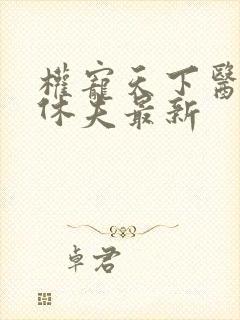 權寵天下醫
休夫最新
卓君